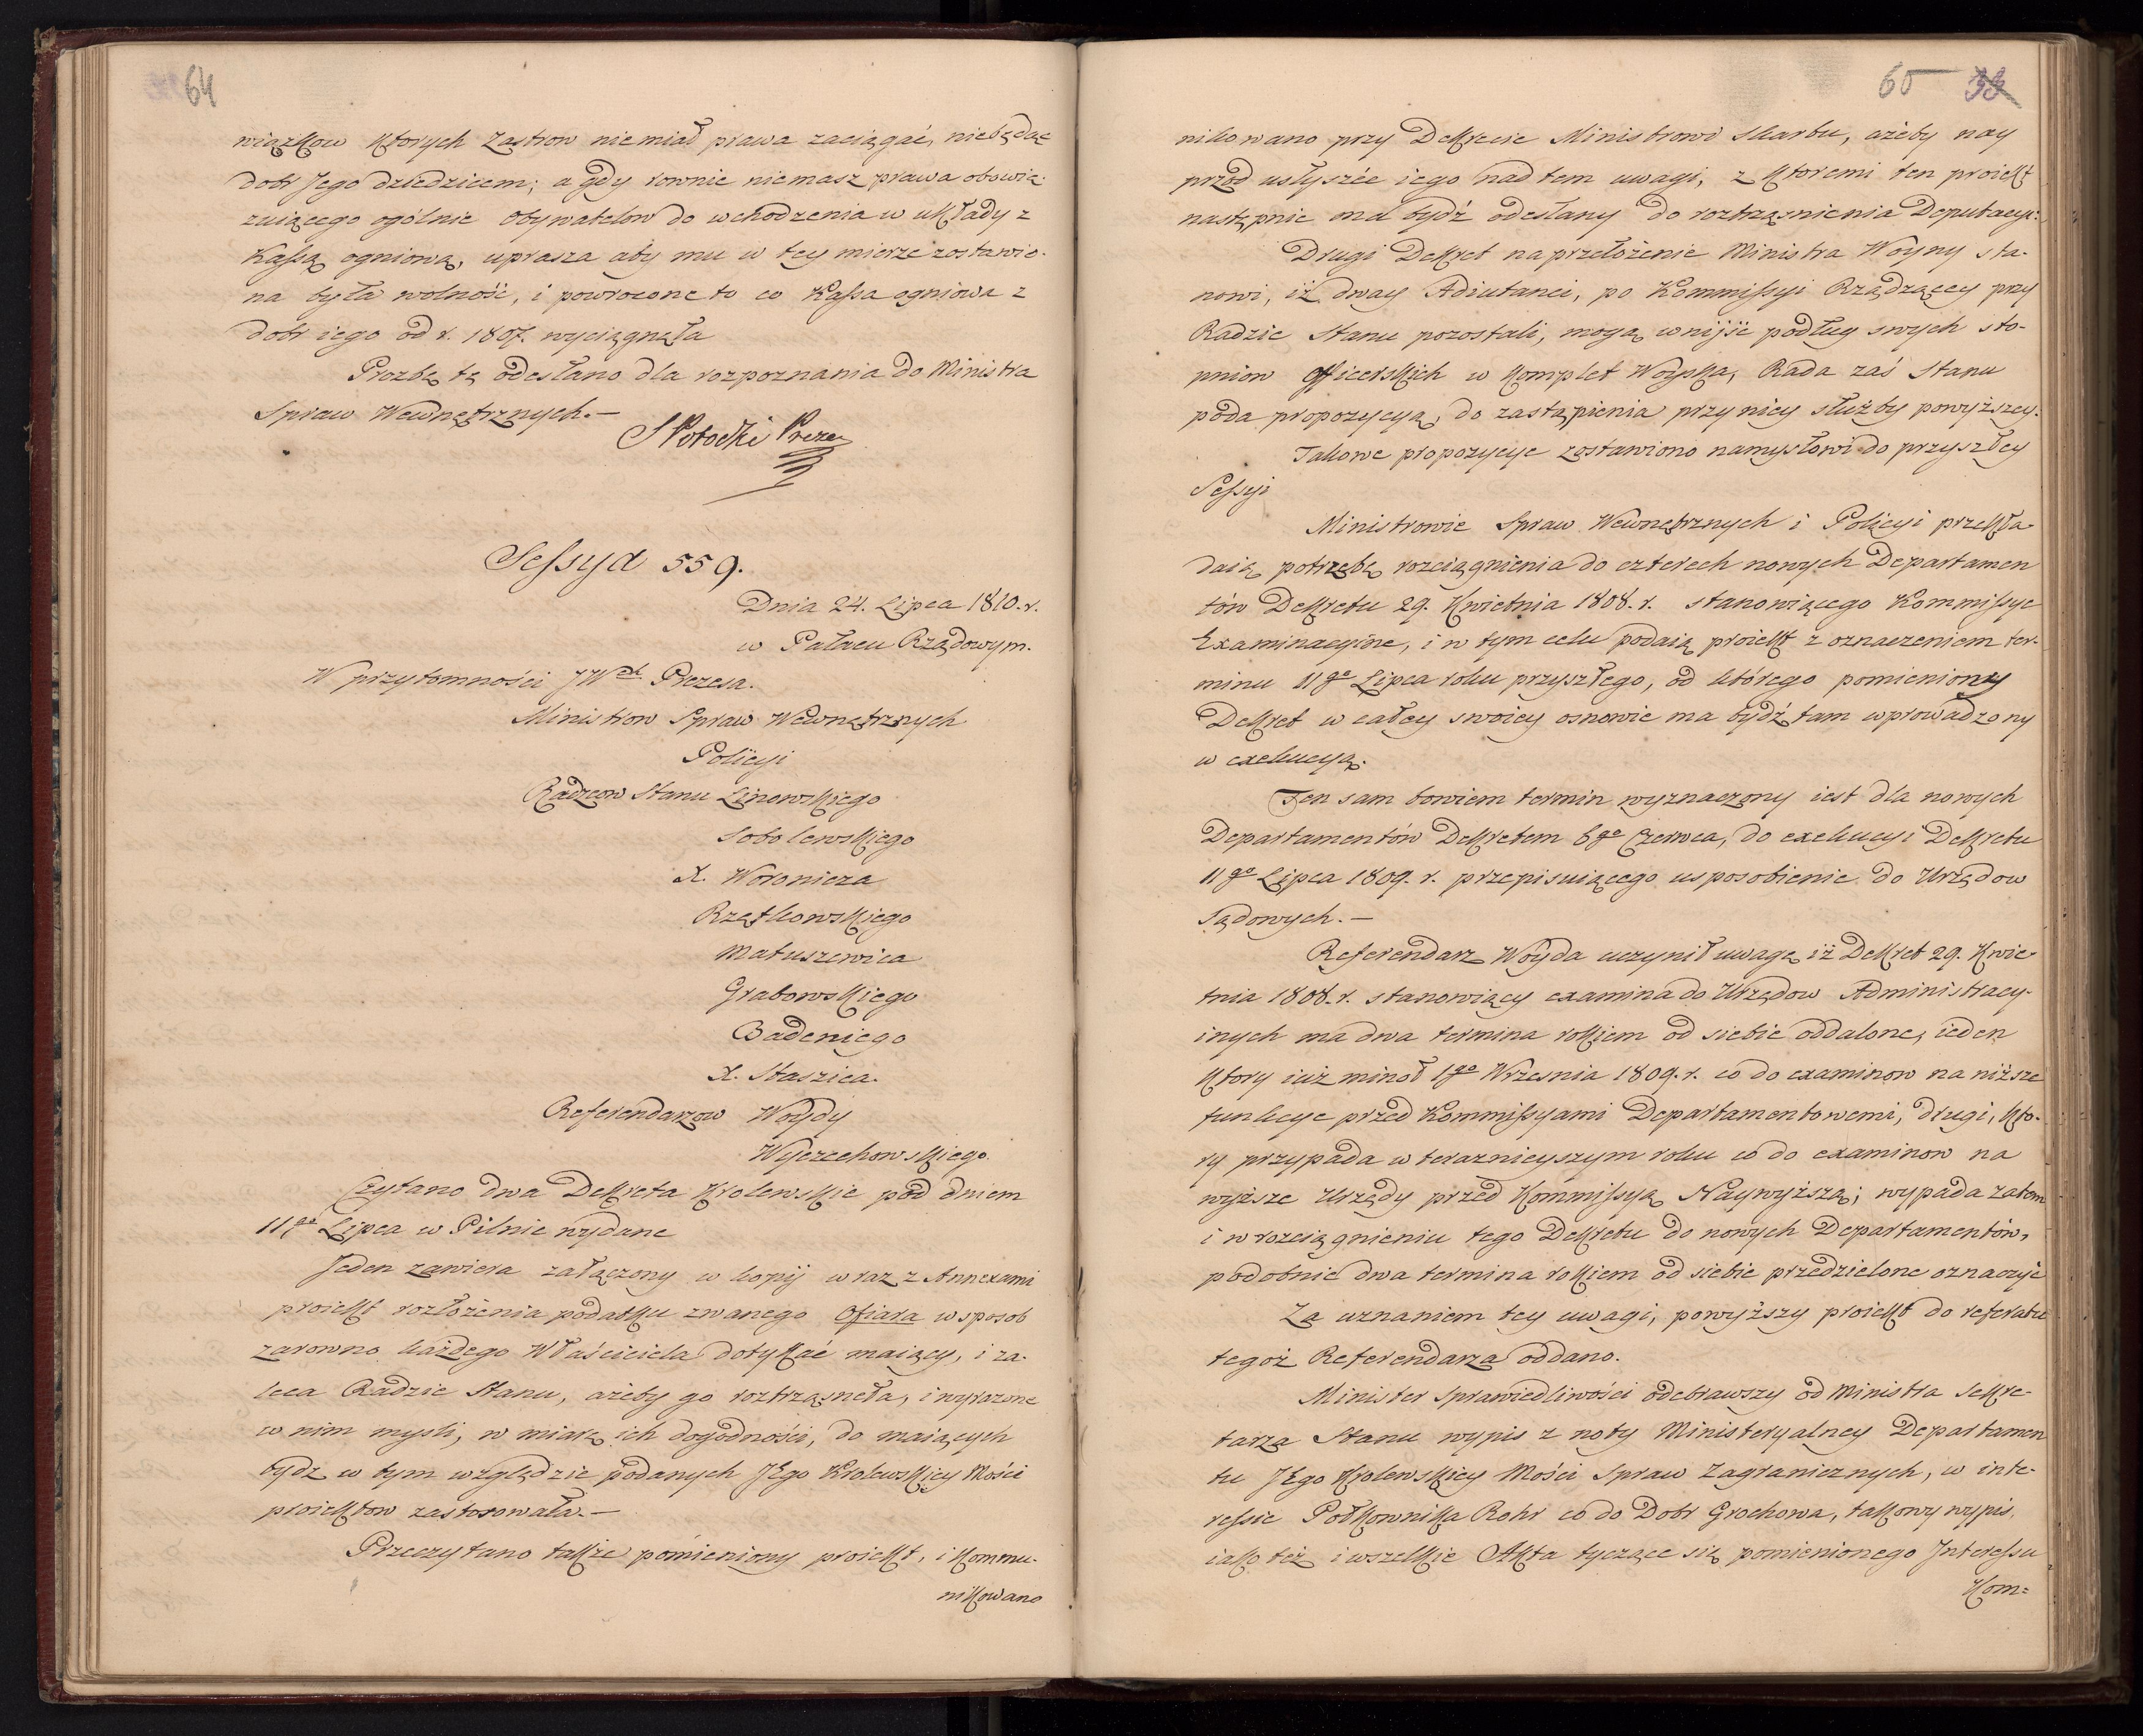 64
wiązkow ktorych Zastrow niemiał prawa zaciągać, niebędąc
dobr Jego dziedzicem; a gdy rownie niemasz prawa obowią-
zuiącego ogólnie Obywatelow do wchodzenia w układy z
Kassą ogniową, uprasza aby mu w tey mierze zostawio-
na była wolność, i powrocone to co Kassa ogniowa z
dobr iego od r. 1807. wyciągnęła
Prozbę tę odesłano dla rozpoznania do Ministra
Spraw Wewnętrznych.—
S Potocki Prezes
Sessya 559.
Dnia 24. Lipca 1810. r.
w Pałacu Rządowym.
W przytomności JW Prezesa.
Ministrow Spraw Wewnętrznych
Policyi
Radzcow Stanu Linowskiego
Sobolewskiego
X. Woronicza
Rzętkowskiego
Matuszewica
Grabowskiego
Badeniego
X. Staszica.
Referendarzow Woydy
Wyczechowskiego.
Czytano dwa Dekreta Krolewskie pod dniem
11go Lipca w Pilnie wydane
Jeden zawiera załączony w kopij wraz z Annexami
proiekt rozłożenia podatku zwanego Ofiara w sposob
zarowno każdego Właściciela dotykać maiący, i za-
leca Radzie Stanu, ażeby go roztrząsnęła, i wyrażone
w nim mysli, w miarę ich dogodności, do maiących
bydz w tym względzie podanych JEgo Krolewskiey Mości
proiektow zastosowała.—
Przeczytano także pomieniony proiekt, i kommu-
nikowano
65 33
nikowano przy Dekrecie Ministrowi Skarbu, ażeby nay
przod usłyszéc iego nad tem uwagi, z ktoremi ten proiekt
następnie ma bydź odesłany do roztrząsnienia Deputacyi.
Drugi Dekret na przełożenie Ministra Woyny sta-
nowi, iż dway Adiutanci, po Kommissyi Rządzącey przy
Radzie Stanu pozostali, mogą wnijść podług swych sto-
pniow officerskich w komplet Woyska, Rada zaś Stanu
poda propozycyą, do zastąpienia przy niey służby powyższey.
Takowe propozycye zostawiono namysłowi do przyszłey
Sessyi
Ministrowie Spraw Wewnętrznych i Policyi przekła-
daią potrzebę rozciągnienia do czterech nowych Departamen
tów Dekretu 29. Kwietnia 1808. r. stanowiącego Kommissye
Examinacyine, i w tym celu podaią proiekt z oznaczeniem ter-
minu 11go Lipca roku przyszłego, od którego pomieniony
Dekret w całey swoiey osnowie ma bydź tam wprowadzony
w exekucyą.
Ten sam bowiem termin wyznaczony iest dla nowych
Departamentów Dekretem 6go Czerwca, do exekucyi Dekretu
11go Lipca 1809. r. przepisuiącego usposobienie do Urzędow
Sądowych.—
Referendarz Woyda uczynił uwagę iż Dekret 29. Kwie-
tnia 1808. r. stanowiący examina do Urzędow Administracy-
inych ma dwa termina rokiem od siebie oddalone, ieden
ktory iuż minoł 1go Wrzesnia 1809. r. co do examinow na niższe
funkcye przed Kommissyami Departamentowemi, drugi, kto-
ry przypada w teraznieyszym roku co do examinow na
wyższe Urzędy przed Kommissyą Naywyższą; wypada zatem
i w rozciągnieniu tego Dekretu do nowych Departamentów,
podobnie dwa termina rokiem od siebie przedzielone oznaczyć
Za uznaniem tey uwagi, powyższy proiekt do referatu
tegoż Referendarza oddano.
Minister Sprawiedliwości odebrawszy od Ministra Sekre-
tarza Stanu wypis z noty Ministeryalney Departamen
tu JEgo Krolewskiey Mości Spraw Zagranicznych, w inte-
ressie Połkownika Rohr co do Dobr Grochowa, takowy wypis,
iako też i wszelkie Akta tyczące się pomienionego Interessu
Kom=